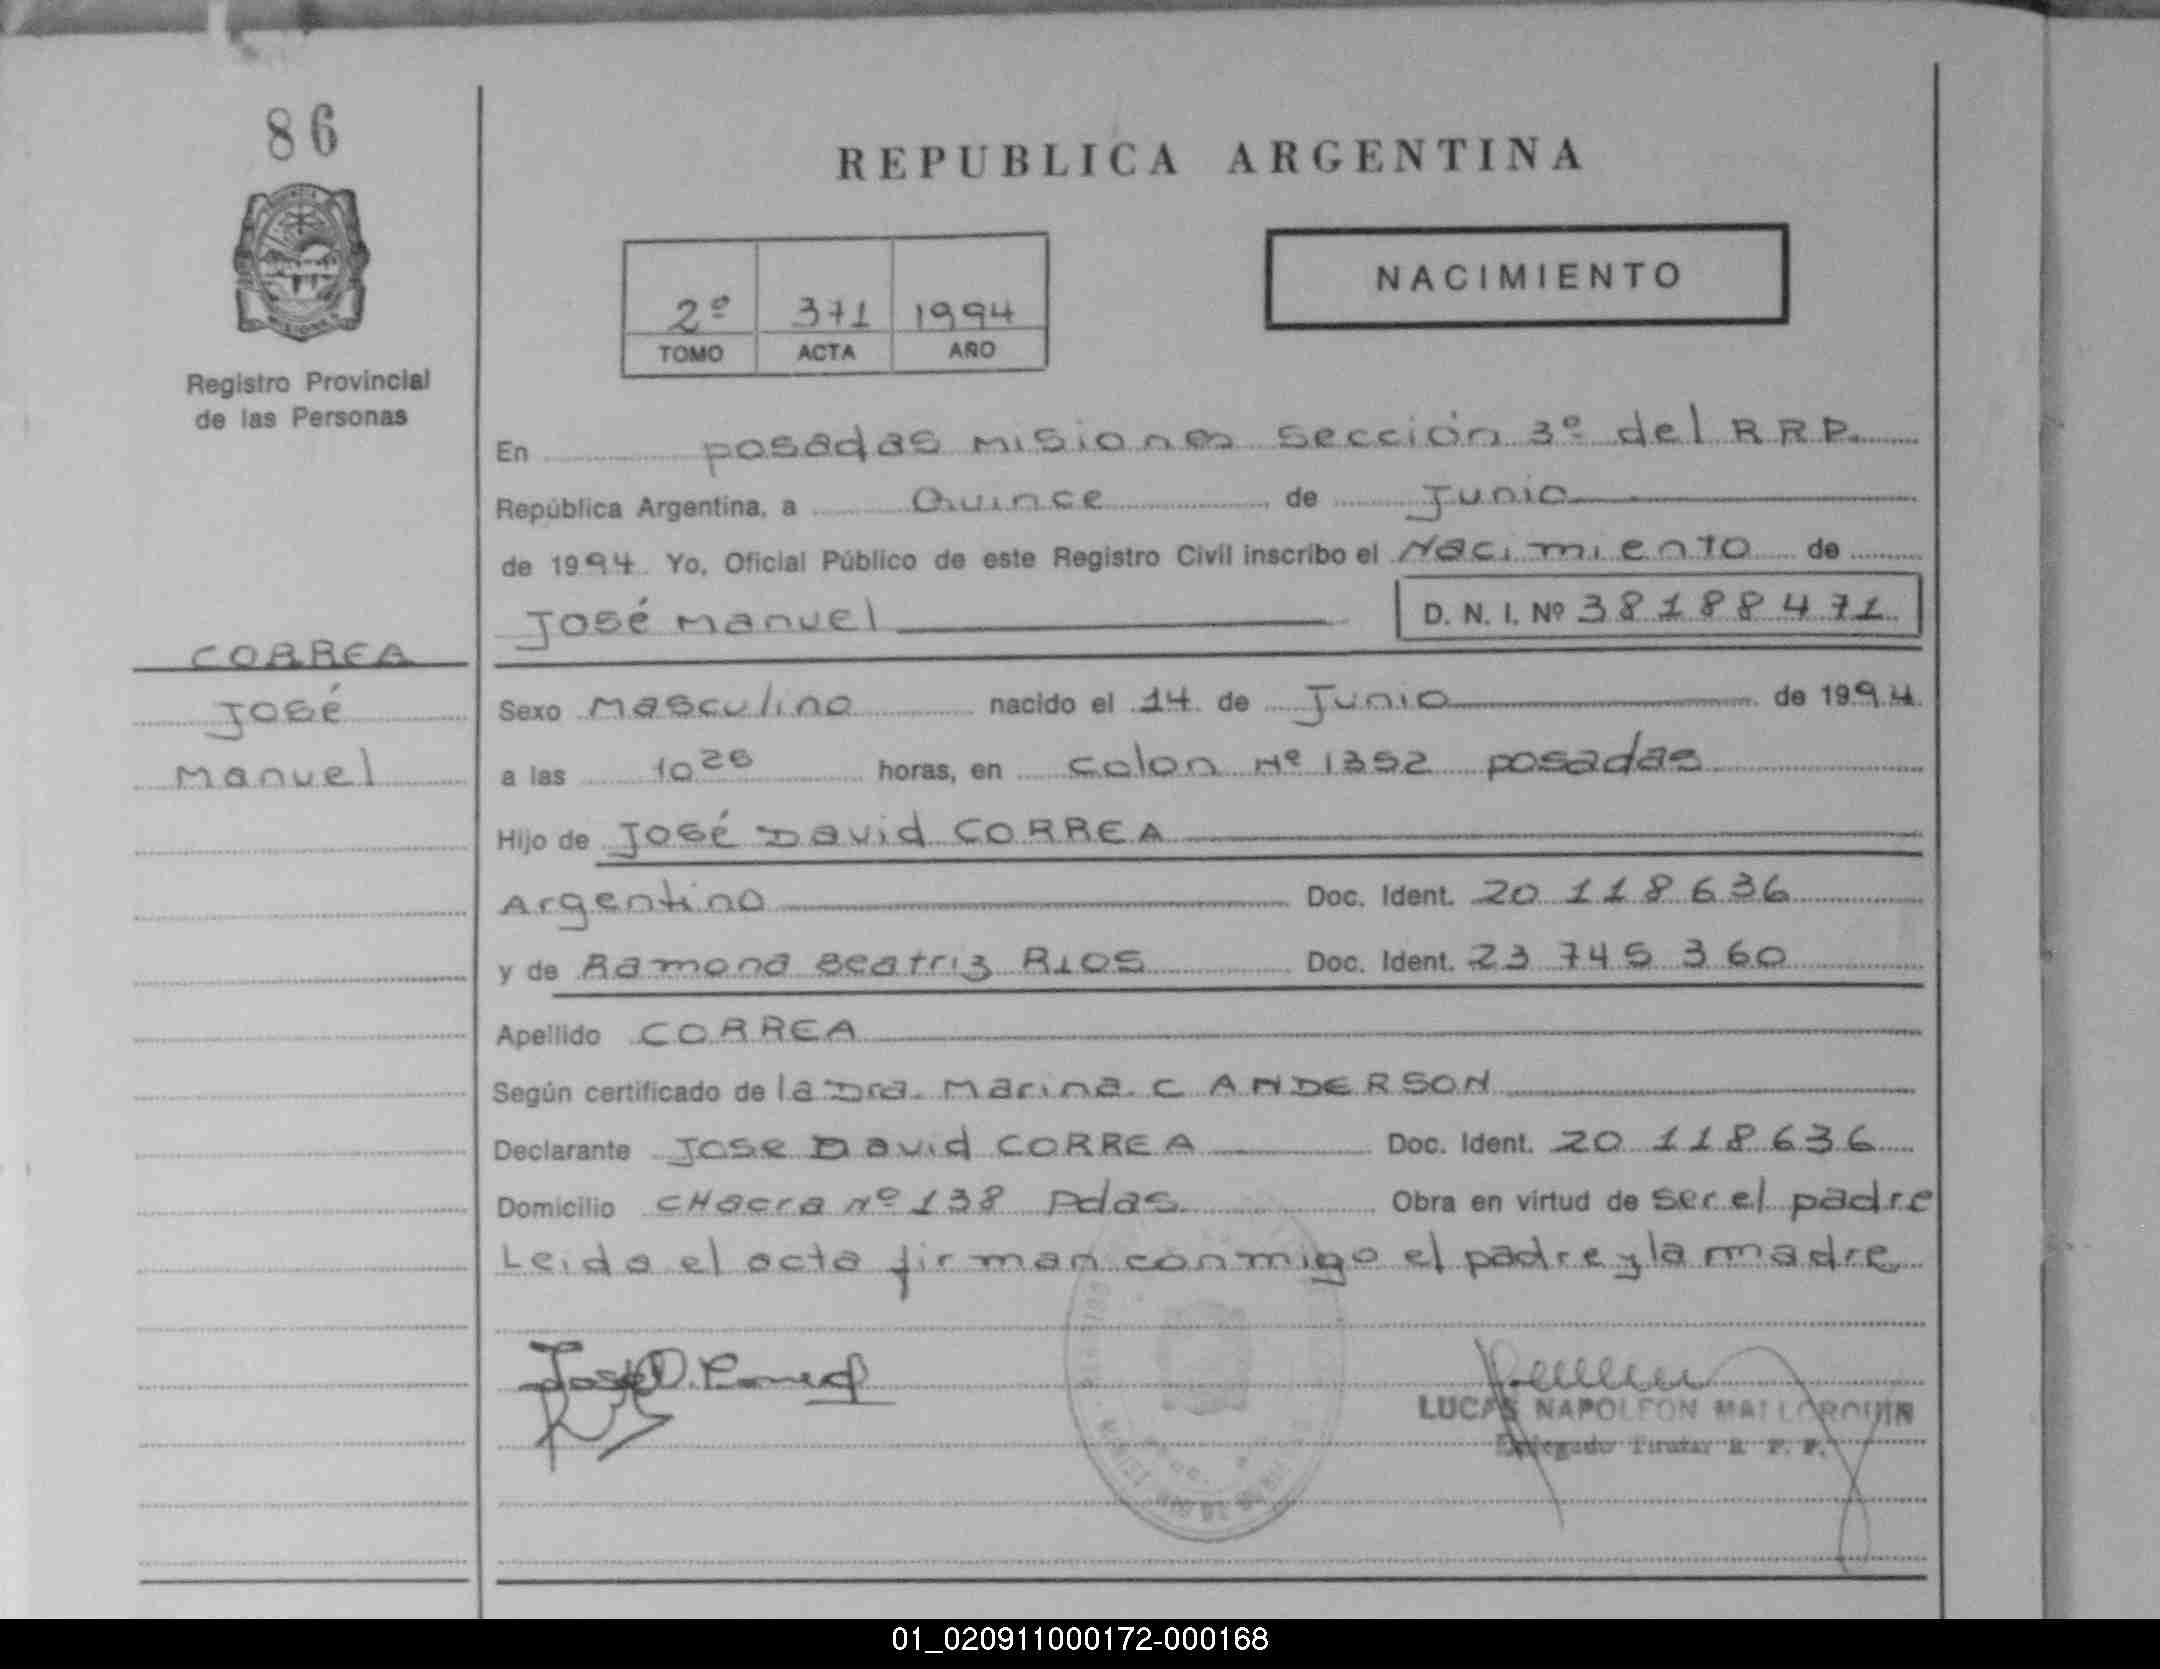 86
REPUBLICA ARGENTINA
NACIMIENTO
2º 371 1994
TOMO ACTA AÑO
Registro Provincial
de las Personas
En posadas misiones sección 3º del RRP.
República Argentina, a Quince de Junio
de 1994. Yo, Oficial Público de este Registro Civil inscribo el Nacimiento de
José Manuel D. N. I. Nº 38188471
CORREA
José
Manuel
Sexo Masculino nacido el 14 de Junio de 1994
a las 10 horas, en Colon Nº 1352 posadas
Hijo de José David CORREA
Argentino Doc. Ident. 20 118 636
y de Ramona Beatriz RIOS Doc. Ident. 23 745 360
Apellido CORREA
Según certificado de la Dra. Marina C ANDERSON
Declarante Jose David CORREA Doc. Ident. 20 118 636
Domicilio CHacra nº 138 Pdas. Obra en virtud de ser el padre
Leida el acta firman conmigo el padre y la madre
José D. Correa
LUCAS NAPOLEON MALLORQUIN
Delegado Titular R. P. P.
01_020911000172-000168